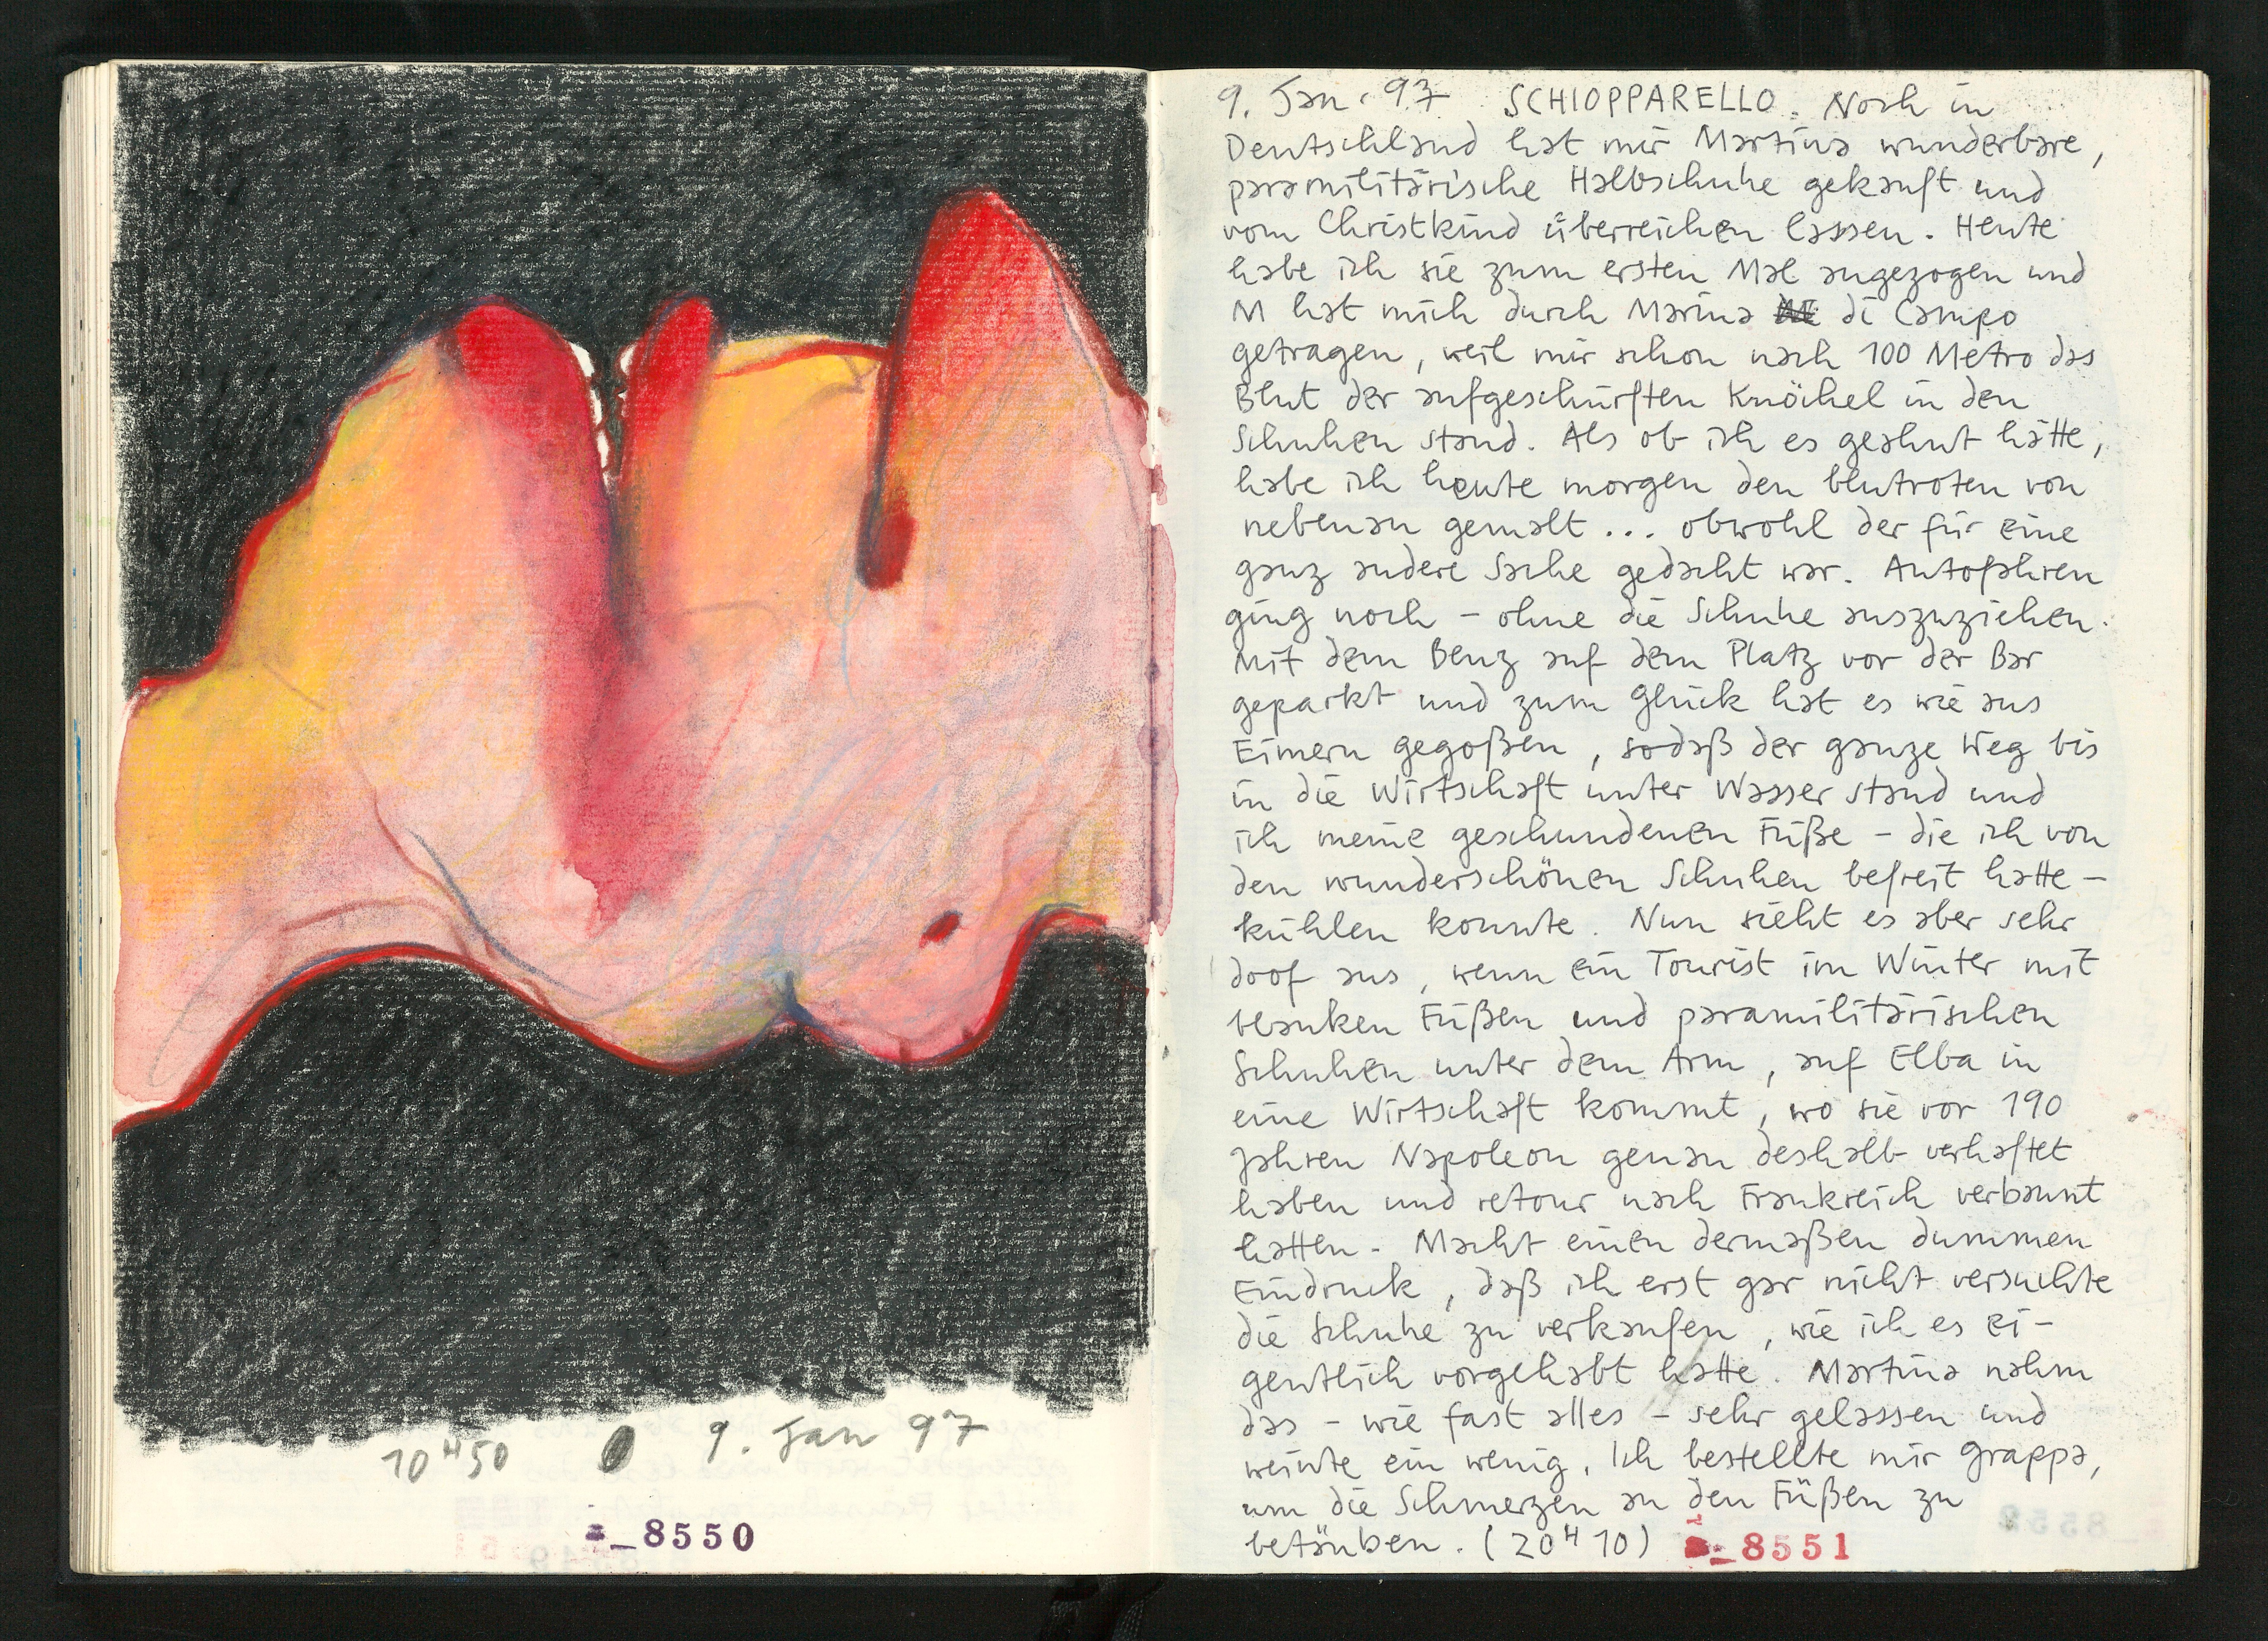 10 H 50 9. Jan 97
8550
9. Jan. 97 SCHIOPPARELLO. Noch in
Deutschland hat mir Martina wunderbare,
paramilitärische Halbschuhe gekauft und
vom Christkind überreichen lassen. Heute
habe ich sie zum ersten Mal angezogen und
M hat mich durch Marina di Campo
getragen, weil mir schon nach 100 Metro das
Blut der aufgeschürften Knöchel in den
Schuhen stand. Als ob ich es geahnt hätte,
habe ich heute morgen den blutroten von
nebenan gemalt ... obwohl der für eine
ganz andere Sache gedacht war. Autofahren
ging noch – ohne die Schuhe auszuziehen.
Mit dem Benz auf dem Platz vor der Bar
geparkt und zum Glück hat es wie aus
Eimern gegoßen, sodaß der ganze Weg bis
in die Wirtschaft unter Wasser stand und
ich meine geschundenen Füße – die ich von
den wunderschönen Schuhen befreit hatte –
kühlen konnte. Nun sieht es aber sehr
doof aus, wenn ein Tourist im Winter mit
blanken Füßen und paramilitärischen
Schuhen unter dem Arm, auf Elba in
eine Wirtschaft kommt, wo sie vor 190
Jahren Napoleon genau deshalb verhaftet
haben und retour nach Frankreich verbannt
hatten. Macht einen dermaßen dummen
Eindruck, daß ich erst gar nicht versuchte
die Schuhe zu verkaufen, wie ich es ei-
gentlich vorgehabt hatte. Martina nahm
das – wie fast alles – sehr gelassen und
weinte ein wenig. Ich bestellte mir Grappa,
um die Schmerzen an den Füßen zu
betäuben. (20 H 10) 8551